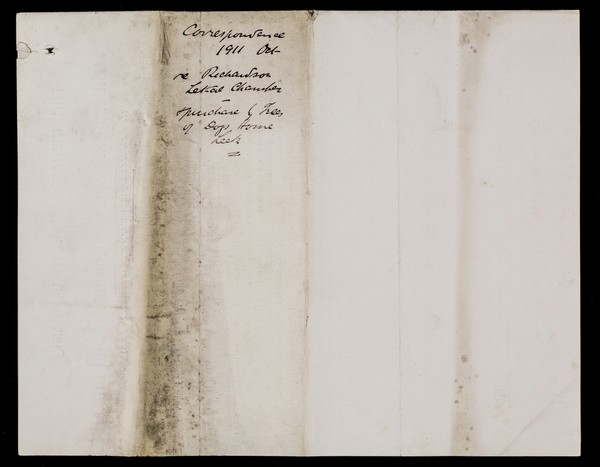 Correspondence
1911 Oct
re Richardson
Lethal Chamber
& purchase by Trees
of Dogs Home
Leek